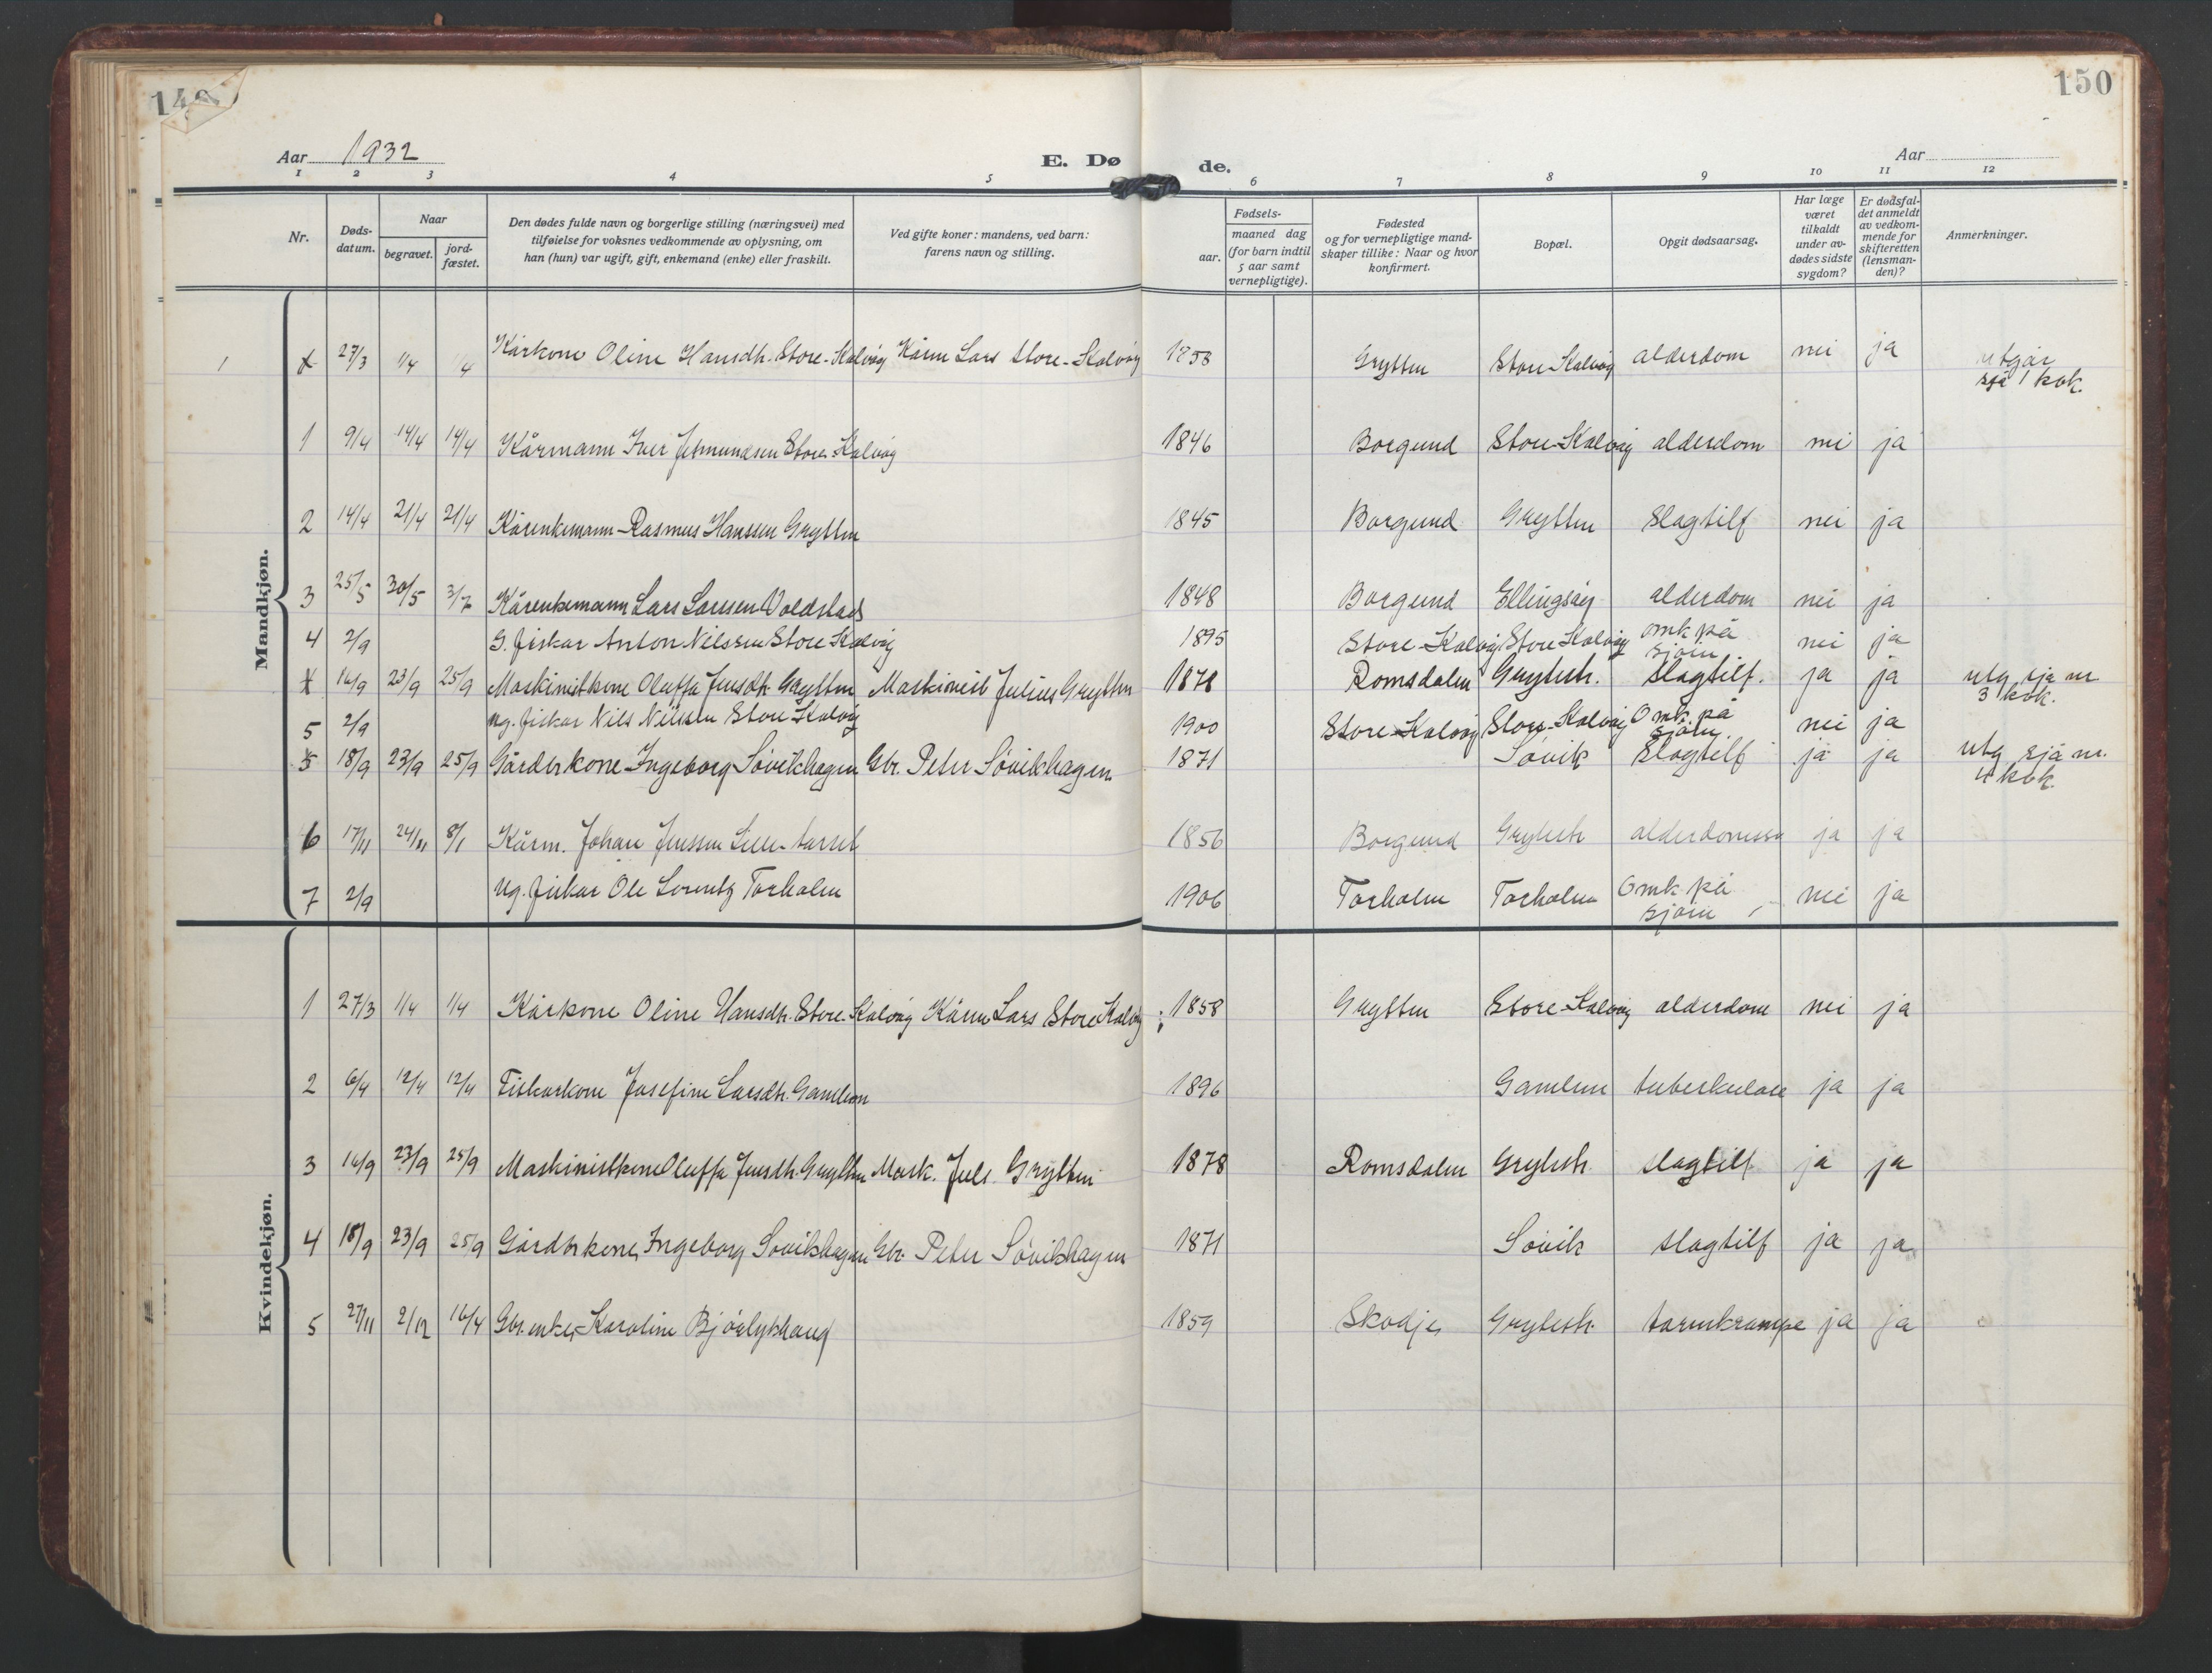 150
Aar 1932
E. Dø de.
Aar
1 2 3 4 5 6 7 8 9 10 11 12
Nr.
Døds-
datum.
Naar
begravet.
jord-
fæstet.
Den dødes fulde navn og borgerlige stilling (næringsvei) med
tilføielse for voksnes vedkommende av oplysning, om
han (hun) var ugift, gift, enkemand (enke) eller fraskilt.
Ved gifte koner: mandens, ved barn:
farens navn og stilling.
Fødsels-
aar.
maaned dag
(for barn indtil
5 aar samt
vernepligtige).
Fødested
og for vernepligtige mand-
skaper tillike: Naar og hvor
konfirmert.
Bopæl.
Opgit dødsaarsag.
Har læge
været
tilkaldt
under av-
dødes sidste
sygdom?
Er dødsfal-
det anmeldt
av vedkom-
mende for
skifteretten
(lensman-
den)?
Anmerkninger.
Mandkjøn.
1 27/3 1/4 1/4 Kårkone Oline Hansdtr. Store-Kalvåg Kårm Lars Store-Kalvåg 1858 Grytten Store-Kalvåg alderdom nei ja utgår
sjå 1 kvk.
1 9/4 14/4 14/4 Kårmann Iver Jetmundsen Store-Kalvåg 1846 Borgund Store-Kalvåg alderdom nei ja
2 14/4 21/4 21/4 Kårenkemann Rasmus Hanssen Grytten 1845 Borgund Grytten Slagtilf nei ja
3 25/5 30/5 3/7 Kårenkemann Lars Larssen Voldstad 1848 Borgund Ellingsøy alderdom nei ja
4 2/9 G. fiskar Anton Nilssen Store Kalvåg 1895 Store-Kalvåg Store Kalvåg omk på
sjøen nei ja
16/9 23/9 25/9 Maskinistkone Oluffa Jensdtr. Grytten Maskinist Julius Grytten 1878 Romsdalen Grytestr. Slagtilf. ja ja utg sjå nr
3 kvk.
5 2/9 ug. fiskar Nils Nilssen Store Kalvåg 1900 Store-Kalvåg Store-Kalvåg Omk. på
sjøen nei ja
5 18/9 23/9 25/9 Gårdbrkone Ingeborg Søvikhagen Gbr. Peter Søvikhagen 1871 Søvik Slagtilf ja ja utg sjå nr.
4 kvk.
6 17/11 24/11 8/1 Kårm. Johan Jenssen Lille-tarset 1856 Borgund Grytestr alderdomssv ja ja
7 2/9 Ug. fiskar Ole Lorentz Torholm 1906 Torholm Torholm Omk. på
sjøen nei ja
Kvindekjøn.
1 27/3 1/4 1/4 Kårkone Oline Hansdtr. Store-Kalvåg Kårm Lars Store Kalvåg 1858 Grytten Store-Kalvåg alderdom nei ja
2 6/4 12/4 12/4 Fiskarkone Josefine Larsdtr. Gamlem 1896 Gamlem tuberkulose ja ja
3 16/9 23/9 25/9 Maskinistkone Oluffa Jensdtr. Grytten Mask. Juls. Grytten 1878 Romsdalen Grytestr. slagtilf ja ja
4 18/9 23/9 25/9 Gårdbrkone Ingeborg Søvikhagen Gbr. Peter Søvikhagen 1871 Søvik slagtilf ja ja
5 27/11 2/12 16/4 Gbr.enke Karoline Bjørlykhaug 1859 Skodje Grytestr. tarmkrampe ja ja